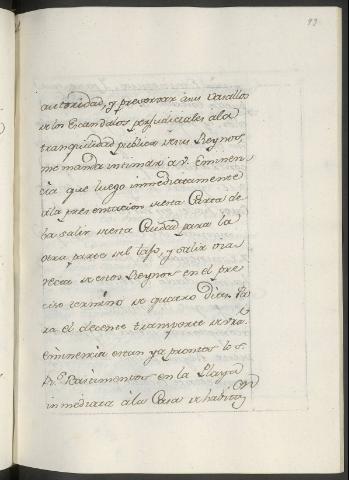 93
autoridad, y preservar à sus Vasallos
de los Escandalos perjudiciales a la
tranquilidad publica de sus Reynos,
me manda intimar a V. Eminen-
cia que luego inmediatamente
a la presentacion de esta Carta de-
ba salir de esta Ciudad para la
otra parte del Tajo, y salir via
recta de estos Reynos en el pre
ciso termino de quatro dias. Pa
ra el decente transporte de V.ra
Eminencia estan ya prontos los
R.s Bastimentos en la Playa
inmediata à la Casa de habitaz.on